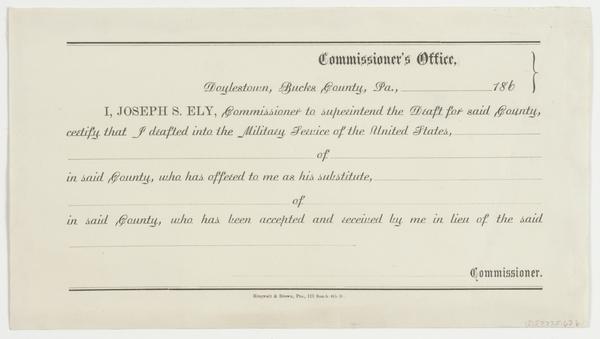 Commissioner's Office,
Doylestown, Bucks County, Pa., 186
I, JOSEPH S. ELY, Commissioner to superintend the Draft for said County,
certify that I drafted into the Military Service of the United States,
of
in said County, who has offered to me as his substitute,
of
in said County, who has been accepted and received by me in lieu of the said
Commissioner.
Ringwalt & Brown, Prs., 111 South 4th St.